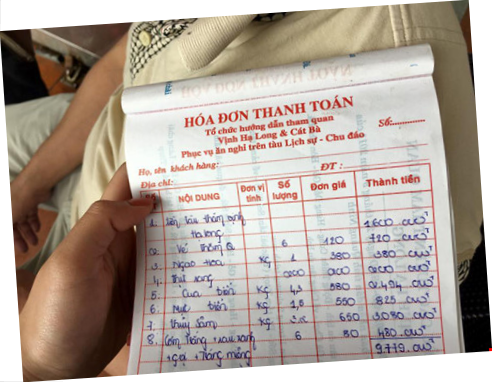 HÓA ĐƠN THANH TOÁN
Tổ chức hướng dẫn tham quan
Vịnh Hạ Long & Cát Bà
Phục vụ ăn nghỉ trên tàu Lịch sự - Chu đáo
Số:.............
Họ, tên khách hàng:
ĐT :
Địa chỉ:
NỘI DUNG Đơn vị tính Số lượng Đơn giá Thành tiền
1. tàu thăm vịnh
Hạ long 1600.000
2. Vé thăm 6 120 720.000
3. Ngao hoa kg 1 380 380.000
4. 200 200.000
5. Cua biển kg 4,3 580 2.494.000
6. Mực kg 1,5 550 825.000
7. kg 650 3.080.000
8. Cơm trắng + rau xanh 6 80 480.000
9.779.000